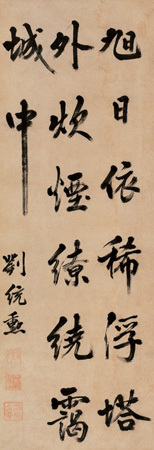 旭日依稀浮塔
外炊煙繚繞靄
城中
劉統勳